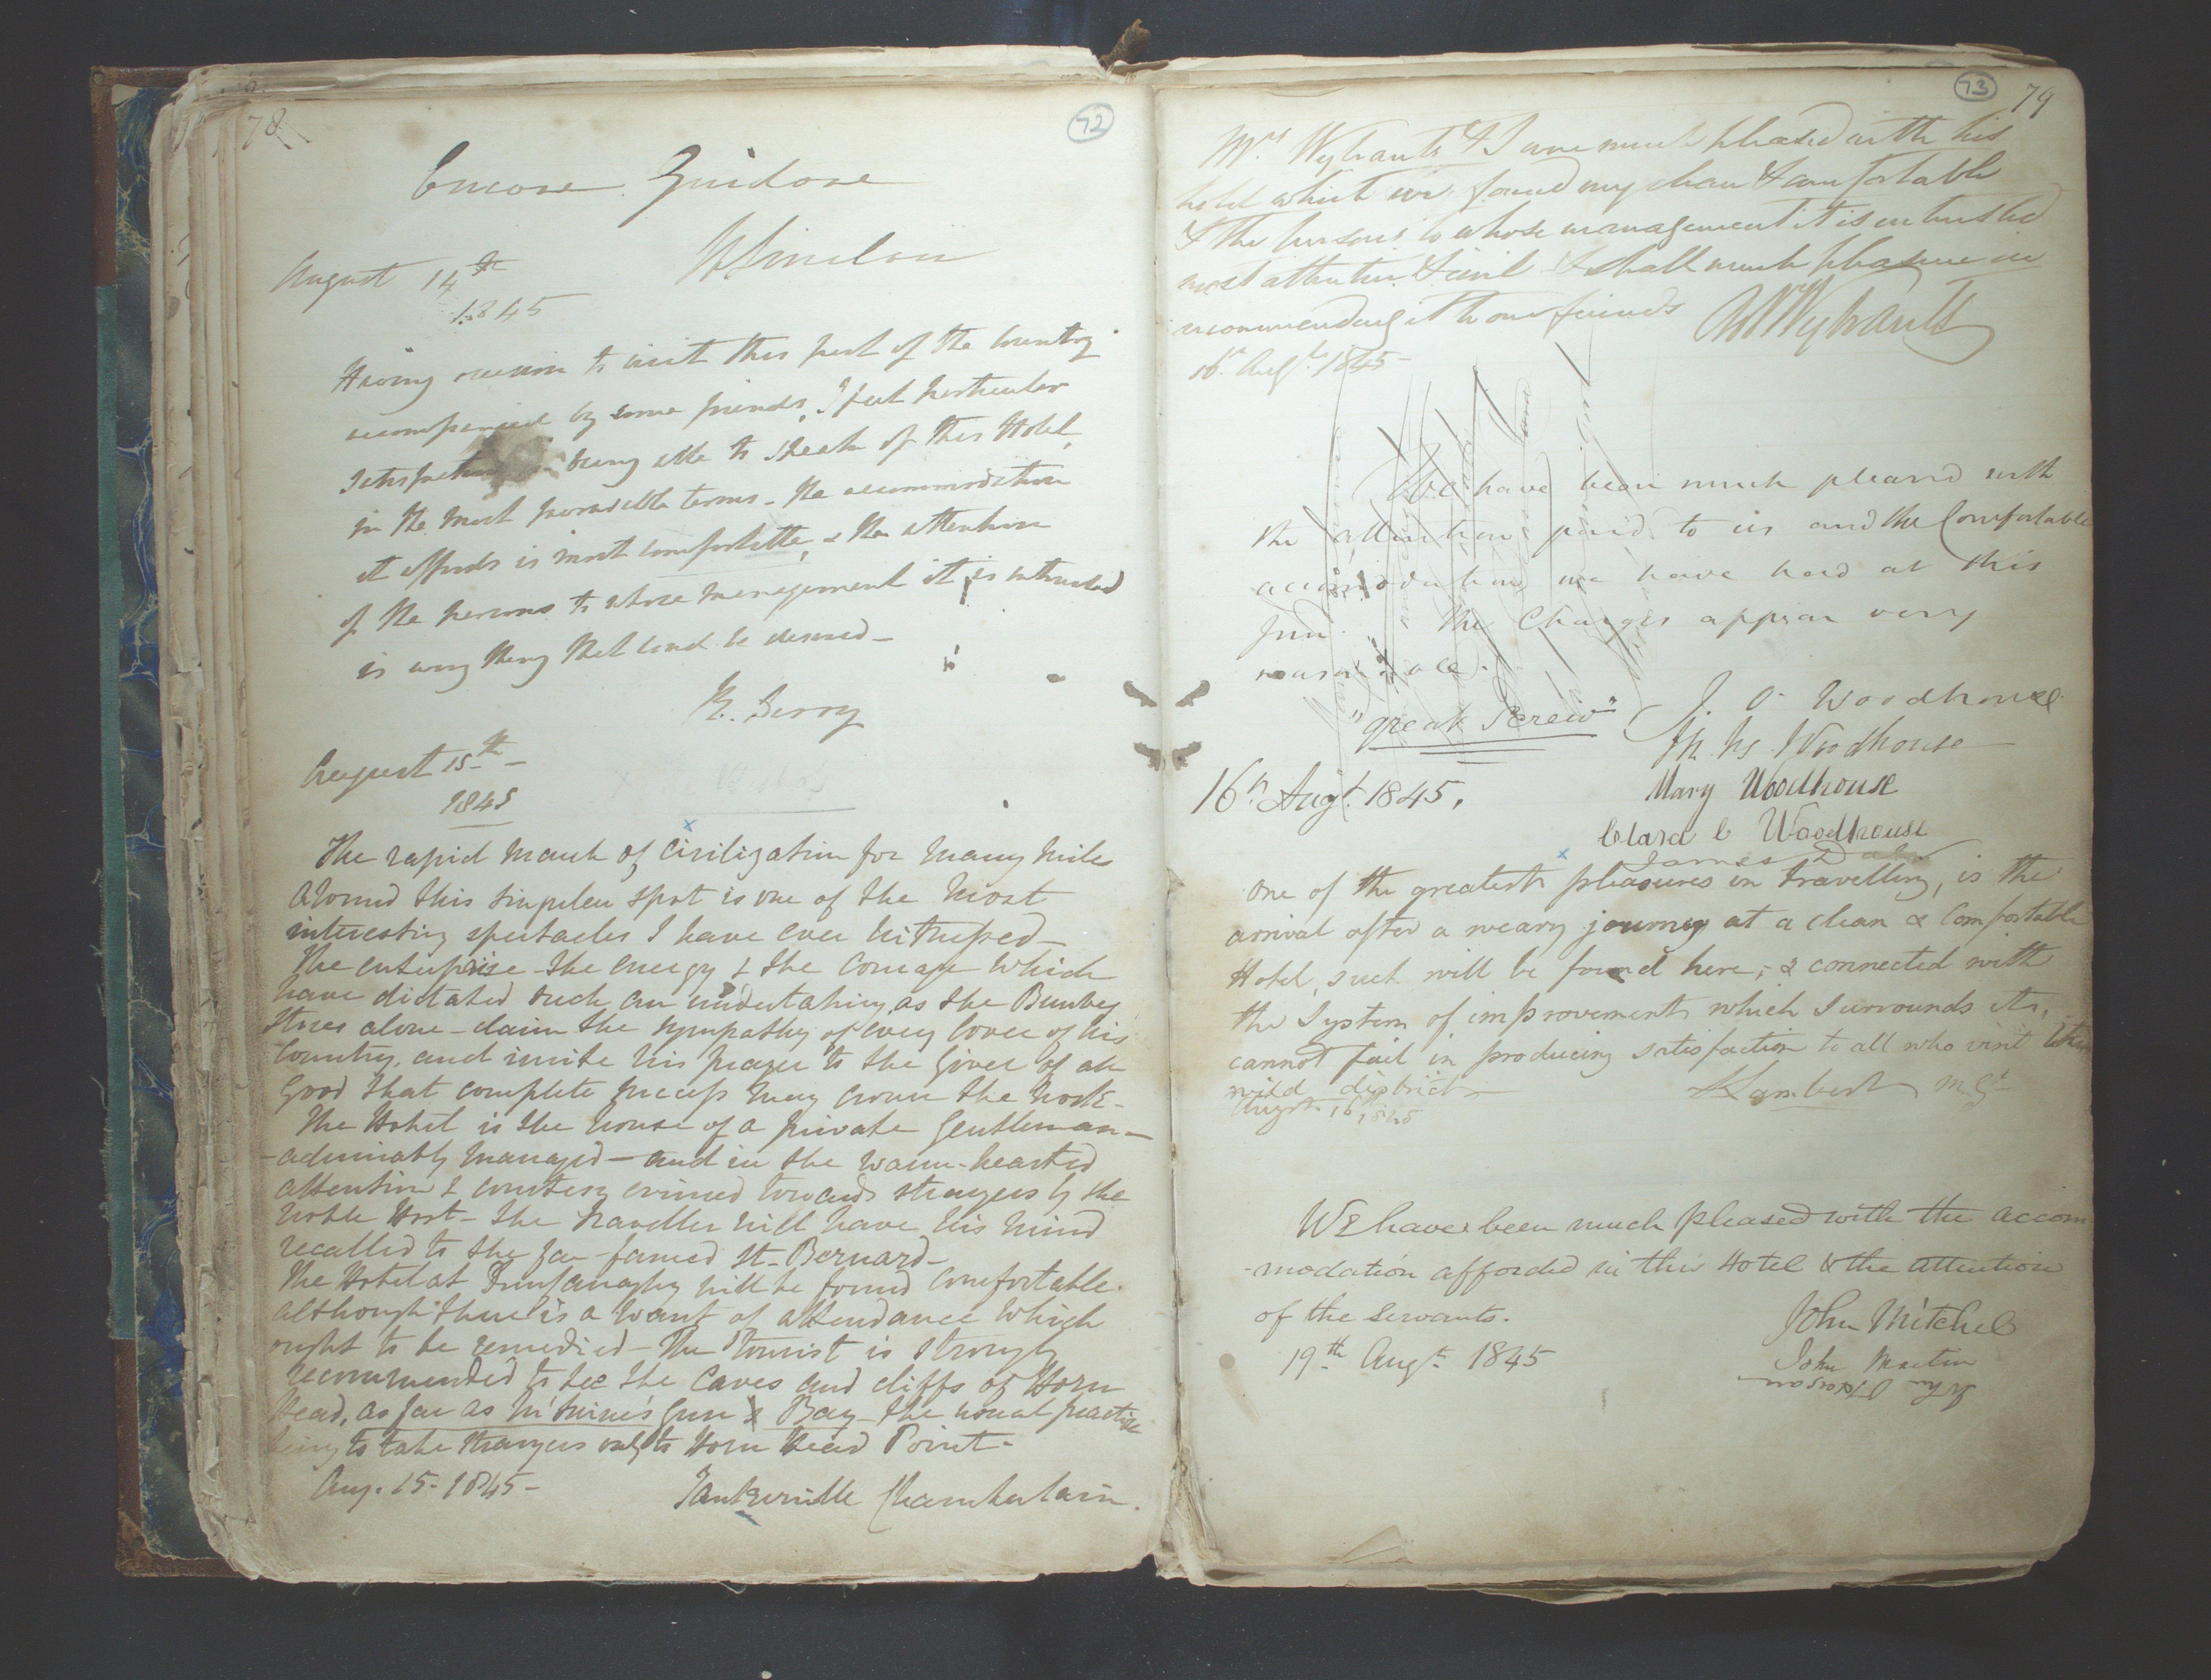 78
72
Encore Guidore
August 14th
1845
Having occasion to visit this part of the Country
accompanied by some friends, I feel particular
satisfaction in being able to speak of this Hotel,
in the most favorable terms - the accommodation
it affords is most comfortable, & the attention
of the persons to whose management it is entrusted
is every thing that could be desired -
August 15th -
1845
The rapid march of Civilization for many miles
around this singular spot is one of the most
interesting spectacles I have ever witnessed -
The enterprise - the energy & the courage which
have dictated such an undertaking as the Bunbeg
Stores alone - claim the sympathy of every lover of his
Country, and invite his prayer to the Giver of all
good that complete success may crown the work -
The Hotel is the house of a private Gentleman -
- admirably managed - and in the warm-hearted
attention & courtesy evinced towards strangers by the
noble Host - the traveller will have his mind
recalled to the far-famed St. Bernard -
The Hotel at Dunfanaghy will be found comfortable.
although there is a want of attendance which
ought to be remedied - The tourist is strongly
recommended to see the Caves and cliffs of Horn
Head, as far as McSwine's Gun & Bay - the usual practise
being to take strangers only to Horn Head Point -
Aug. 15 - 1845 -
Tankerville Chamberlain.
73
79
Mrs Wybrants & I were much pleased with this
hotel which we found very clean & comfortable
& the persons to whose management it is entrusted
most attentive & civil I shall much pleasure in
recommending it to our friends
W Wybrants
16th Augt 1845 -
We have been much pleased with
the attention paid to us and the Comfortable
accomodation we have had at this
Inn. The Charges appear very
reasonable.
"great Screw"
J. O Woodhouse
Woodhouse
Mary Woodhouse
Clara C Woodhouse
16th Augt. 1845.
James
One of the greatest pleasures in travelling, is the
arrival after a weary journey at a clean & Comfortable
Hotel, such will be found here, & connected with
the System of improvements which surrounds it,
cannot fail in producing satisfaction to all who visit this
wild district -
Lambert
Augst 16th 1845
WE have been much pleased with the accom
-modation afforded in this Hotel & the attention
of the servants.
John Mitchel
19th Augt 1845
John Martin